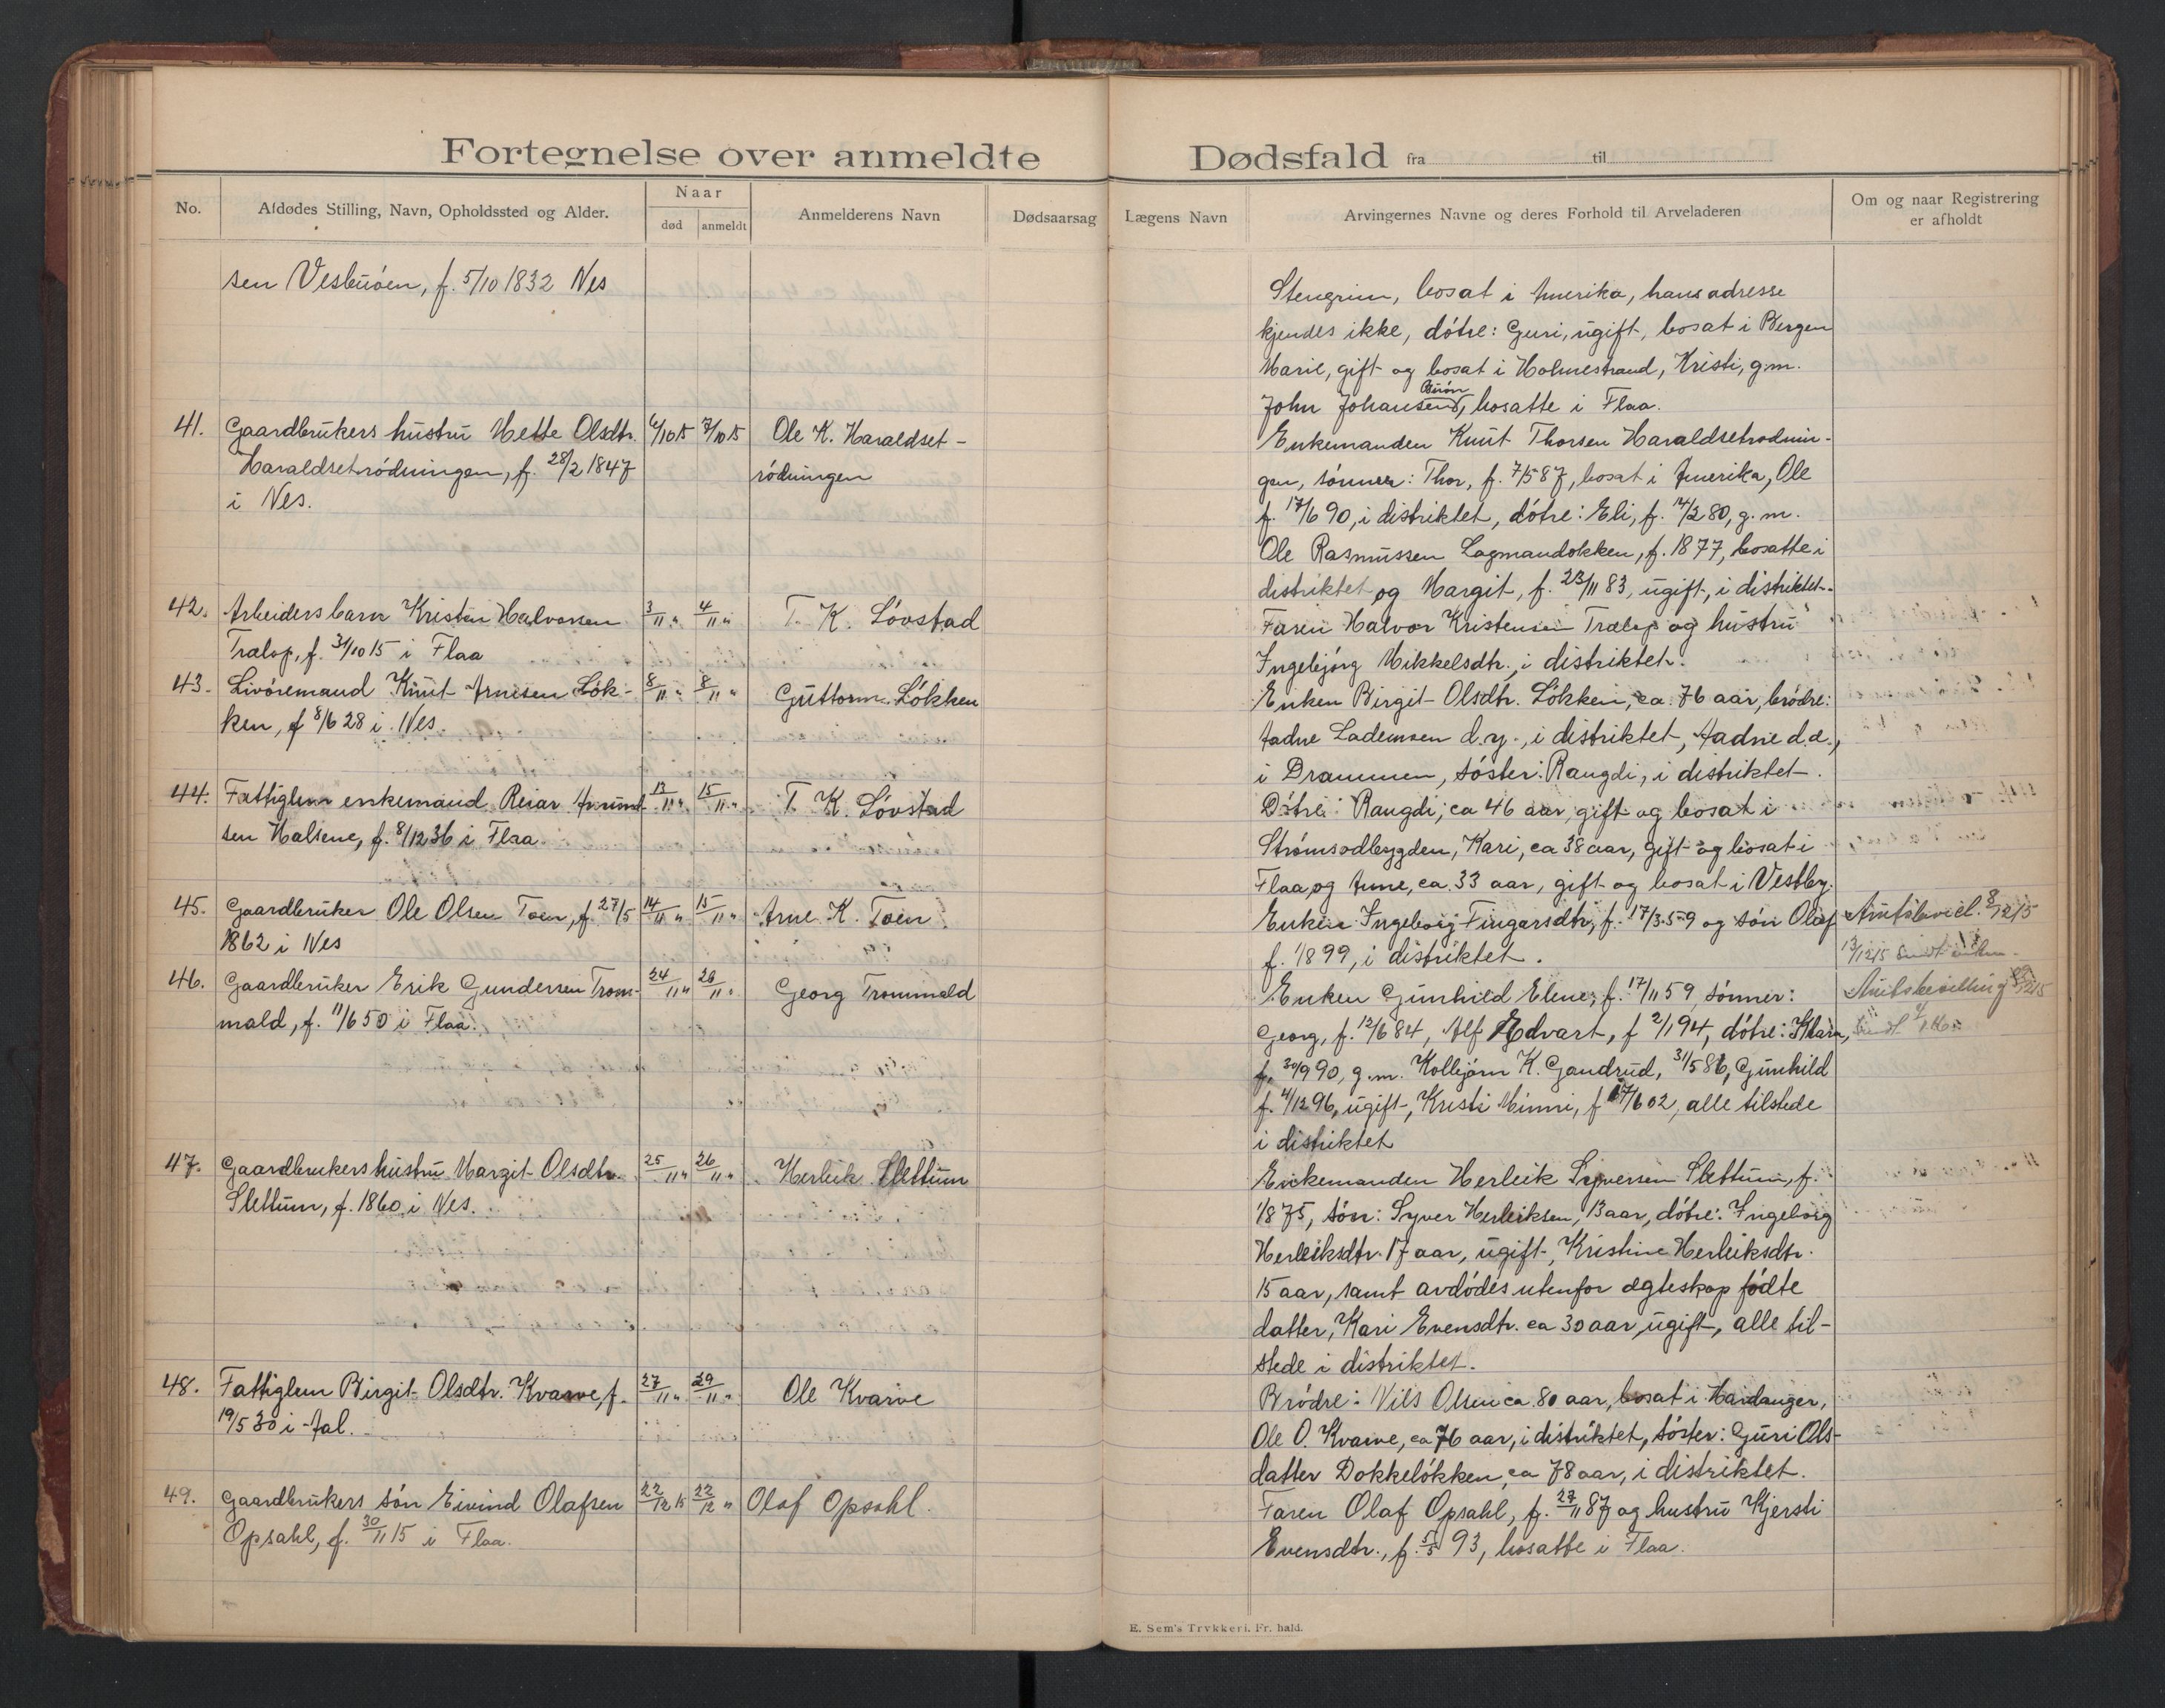 Fortegnelse over anmeldte Dødsfald fra til
No.
Afdødes Stilling, Navn, Opholdssted og Alder.
Naar
død anmeldt
Anmelderens Navn
Dødsaarsag
Lægens Navn
Arvingernes Navne og deres Forhold til Arveladeren
Om og naar Registrering
er afholdt
sen Vesbuóen, f. 5/10 1832 Nes
Stengrim, bosat i Amerika, hans adresse
kjendes ikke, dótre: Guri, ugift, bosat i Bergen
Marie, gift og bosat i Holmestrand, Kristi, g.m.
John Johansen, bosatte i Flaa.
41. Gaardbrukers hustru Mette Olsdtr. 6/10 15 7/10 15 Ole K. Haraldset-
Haraldsetródningen, f. 28/2 1847 ródningen
i Nes.
Enkemanden Knut Thorsen Haraldsetrodnin-
gen, sónner: Thor, f. 7/5 87, bosat i Amerika, Ole
f. 17/6 90, i distriktet, dótre: Eli, f. 14/2 80, g.m.
Ole Rasmussen Lagmandokken, f. 1877, bosatte i
distriktet og Margit, f. 23/11 83, ugift, i distriktet.
42. Arbeidersbarn Kristen Halvorsen 3/11 " 4/11 " T. K. Lóvstad
Trælop, f. 31/10 15 i Flaa
Faren Halvor Kristensen Trælop og hustru
Ingebjórg Mikkelsdtr., i distriktet.
43. Livóremand Knut Arnesen Lók- 8/11 " 8/11 " Guttorm Lókken
ken, f 8/6 28 i Nes.
Enken Birgit Olsdtr. Lókken, ca. 76 aar, bródre:
Aadne Lademoen d.y., i distriktet, Aadne d.æ.,
i Drammen, sóster: Rangdi, i distriktet.
44. Fattiglem enkemand Reiar Amund- 13/11 " 15/11 " T. K. Lóvstad
sen Halsene, f. 8/12 36 i Flaa
Dótre: Rangdi, ca 46 aar, gift og bosat i
Strømsodbygden, Kari, ca 38 aar, gift og bosat i
Flaa, og Anne, ca. 33 aar, gift og bosat i Vestby.
45. Gaardbruker Ole Olsen Toen, f. 27/5 14/11 " 15/11 " Arne K. Toen
1862 i Nes
Enken Ingeborg Fingarsdtr, f. 17/3 59 og són Olaf Amtsbevil. 8/12 15
f. 1/8 99, i distriktet. 13/12 15 sendt enken.
46. Gaardbruker Erik Gundersen Trom- 24/11 " 26/11 " Georg Trommald
mald, f. 11/6 50 i Flaa.
Enken Gunhild Elene, f. 17/11 59, sónner: Amtsbevilling
Georg, f. 12/6 84, Alf Edvart, f 2/1 94, dótre: Klara,
f. 30/9 90, g.m. Kolbjórn K. Gandrud, 31/5 86, Gunhild
f. 4/12 96, ugift, Kristi Minni, f 17/6 02, alle tilstede
i distriktet
47. Gaardbrukers hustru Margit Olsdtr. 25/11 " 26/11 " Herleik Slettum
Slettum, f. 1860 i Nes.
Enkemanden Herleik Syversen Slettum, f.
1/8 75, són: Syver Herleiksen, 13 aar, dótre: Ingeborg
Herleiksdtr. 17 aar, ugift, Kristine Herleiksdtr.
15 aar, samt avdódes utenfor ægteskap fódte
datter, Kari Evensdtr. ca 30 aar, ugift, alle til-
stede i distriktet.
48. Fattiglem Birgit Olsdtr. Kvarve, f. 27/11 " 29/11 " Ole Kvarve
19/5 30 i Aal.
Bródre: Nils Olsen ca 80 aar, bosat i Hardanger,
Ole O. Kvarve, ca 76 aar, i distriktet, sóster: Guri Ols-
datter Dokkelókken, ca 78 aar, i distriktet.
49. Gaardbrukers són Eivind Olafsen 22/12 15 22/12 " Olaf Opsahl.
Opsahl, f. 30/11 15 i Flaa.
Faren Olaf Opsahl, f. 27/11 87 og hustru Kjersti
Evensdtr., f. 5/5 93, bosatte i Flaa.
E. Sem's Trykkeri. Fr. hald.